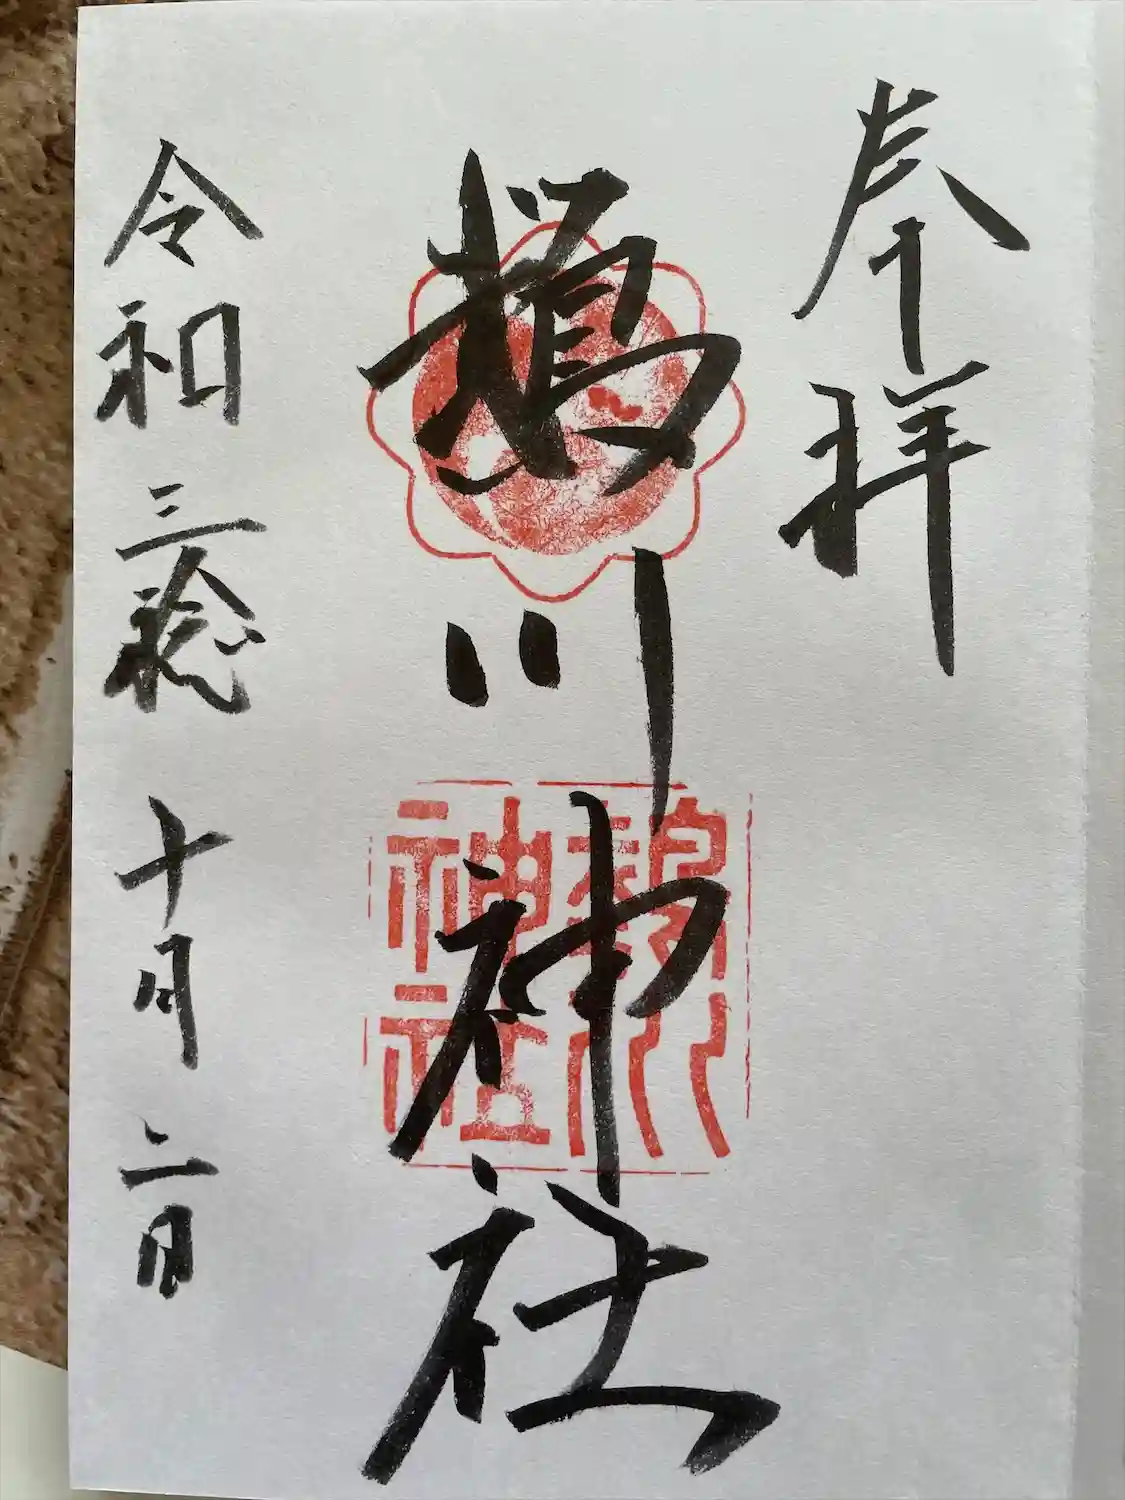 奉拝
鵡川神社
鵡川
神社
令和三稔十月二日